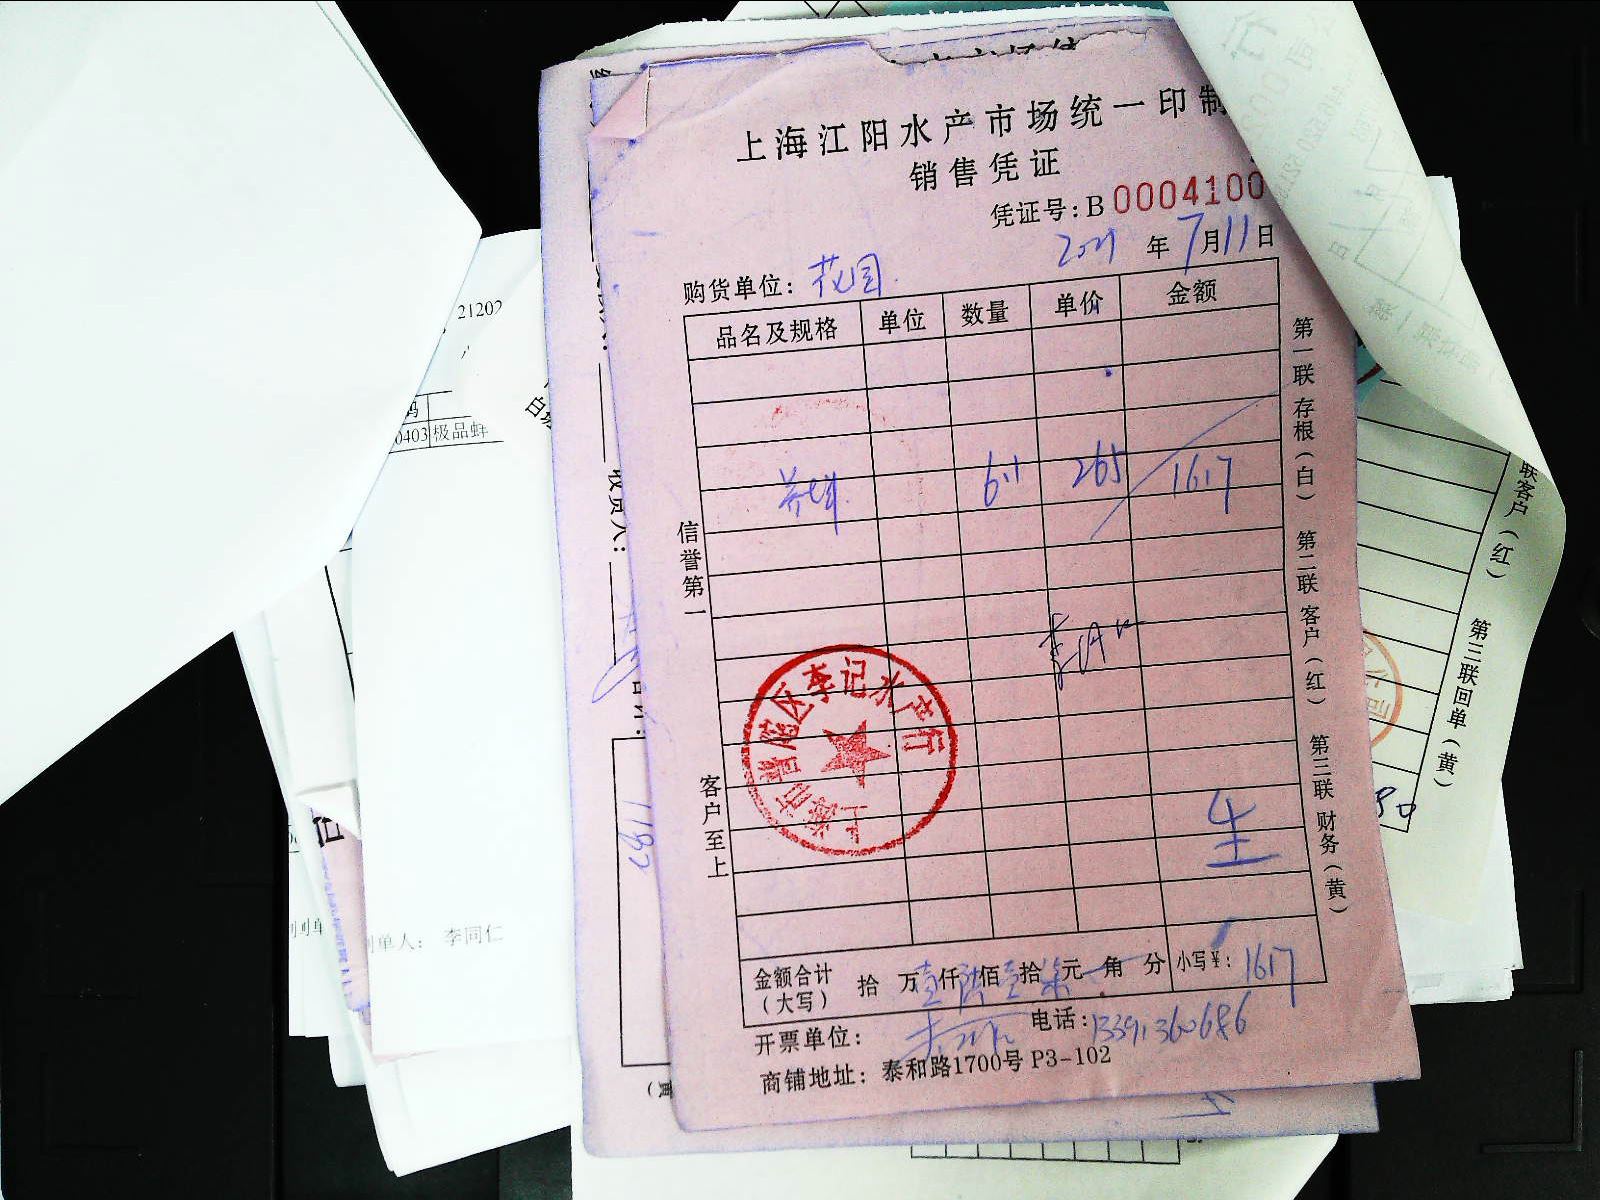 上海江阳水产市场统一印制
销售凭证
凭证号:B 0004100
2021 年 7月11日
购货单位: 花园
品名及规格 单位 数量 单价 金额
6.1 265 1617
信誉第一
客户至上
第一联 存根(白) 第二联 客户(红) 第三联 财务(黄)
金额合计(大写) 拾 万 壹仟 陆佰 壹拾 柒元 角 分 小写¥: 1617
开票单位: 电话: 13391360686
商铺地址: 泰和路1700号 P3-102
上海市普陀区李记水产行
21202
0403 极品蚌
制单人: 李同仁
联客户(红) 第三联回单(黄)
收货人: